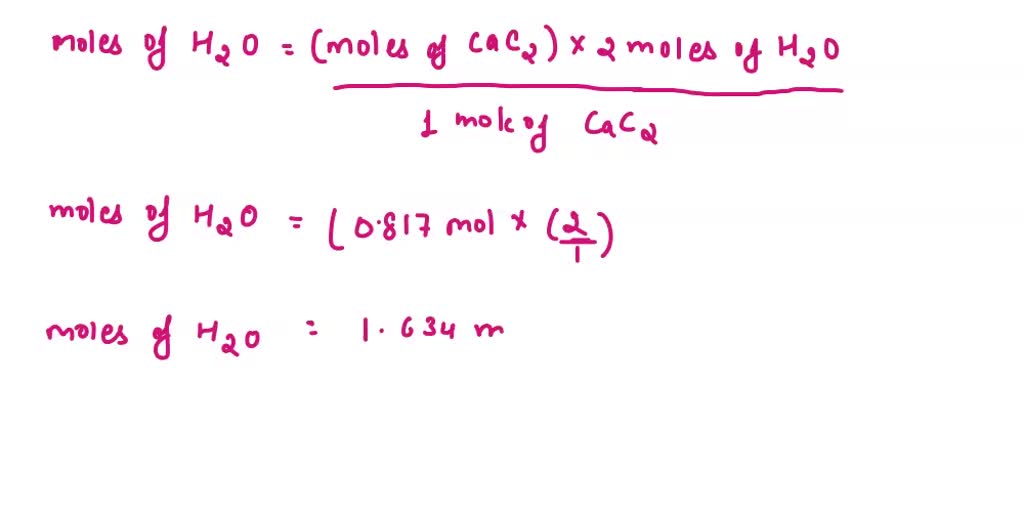 moles of H2O = (moles of CaC2) × 2 moles of H2O
1 mole of CaC2
moles of H2O = (0.817 mol × (2/1)
moles of H2O = 1.634 m